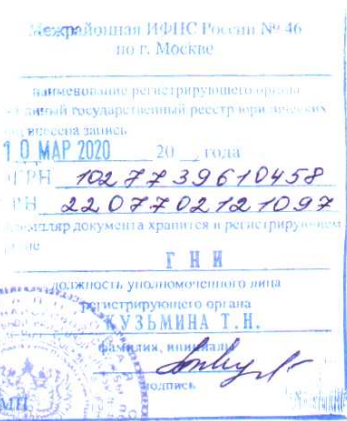 Межрайонная ИФНС России № 46
по г. Москве
наименование регистрирующего органа
единый государственный реестр юридических
внесена запись
10 МАР 2020 20 года
ОГРН 1027739610458
ГРН 2207702121097
экземпляр документа хранится в регистрирующем
органе
ГНИ
должность уполномоченного лица
регистрирующего органа
КУЗЬМИНА Т.Н.
фамилия, инициалы
подпись
МП